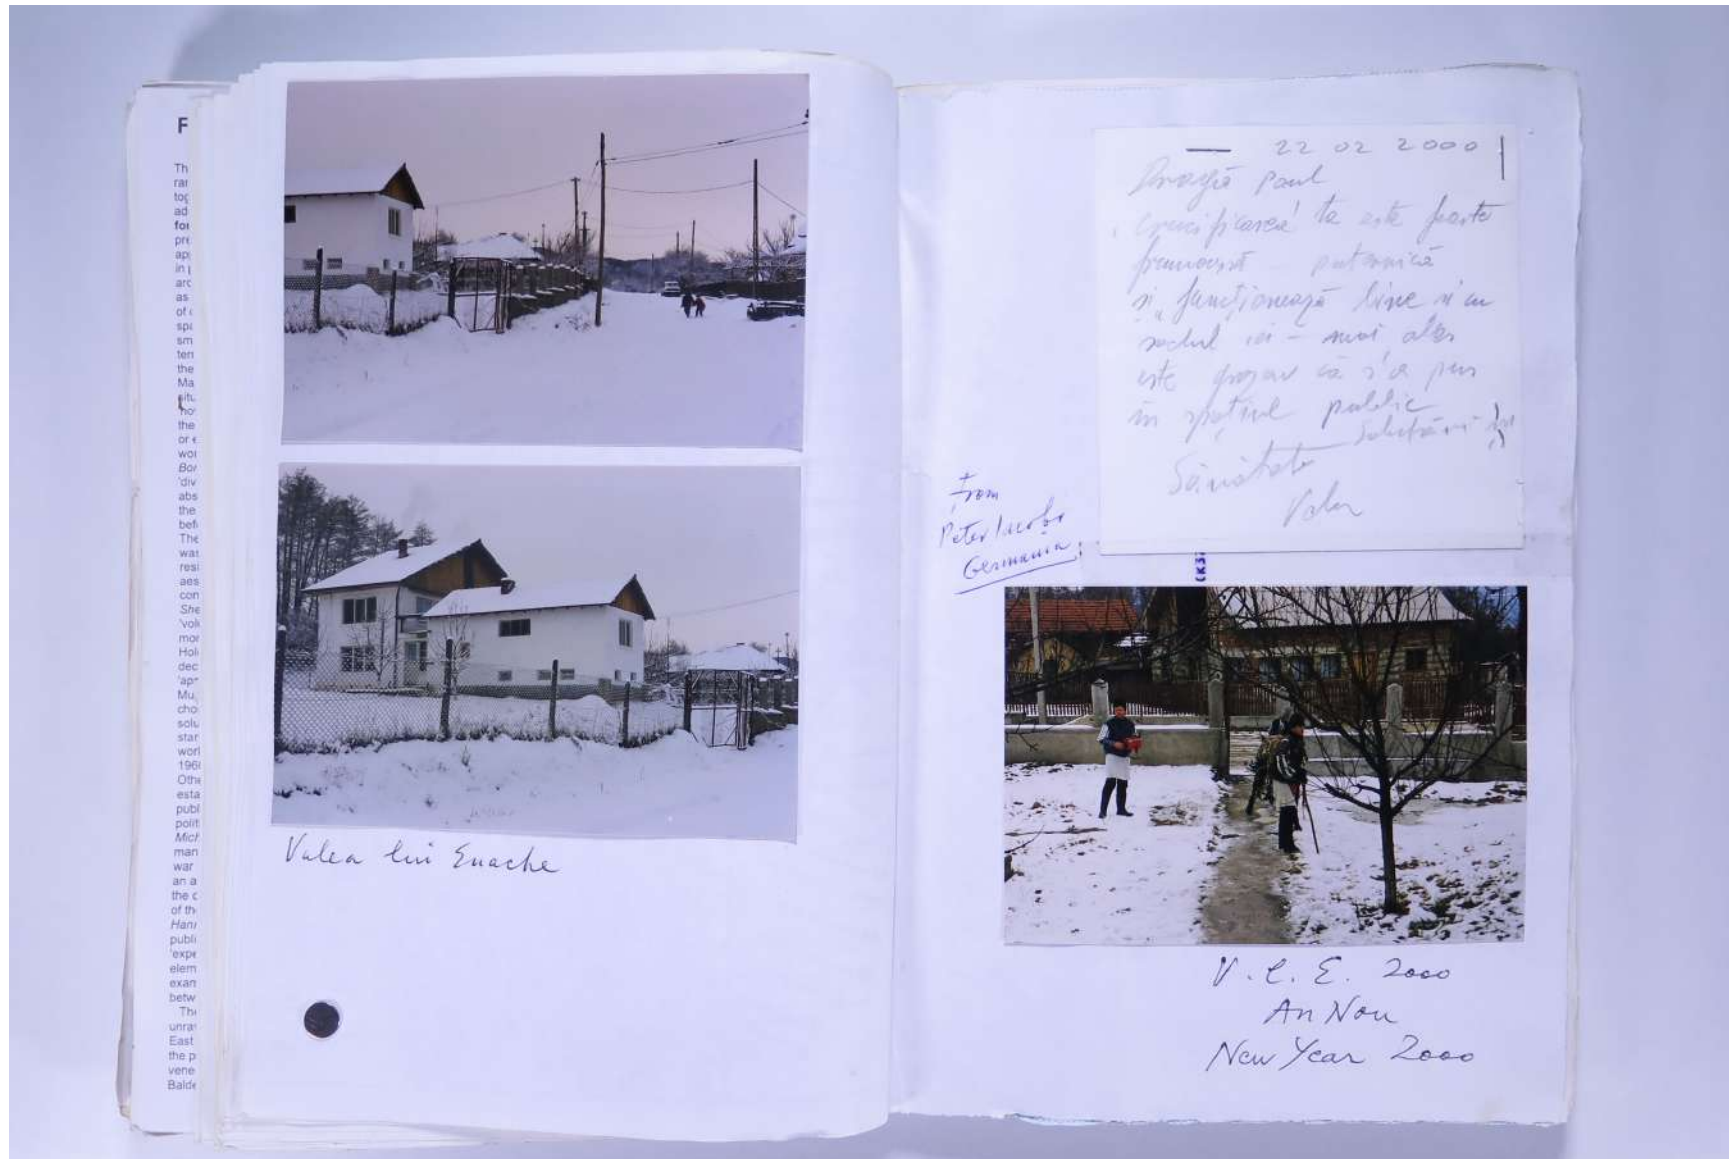 F
Th
rar
tog
ad
for
pre
app
in p
arc
as
of c
spa
sm
ten
the
Ma
situ
the
or e
wor
Bor
'div
abs
the
befo
The
was
resi
aes
con
She
'volu
mor
Hol
dec
'ap
Mu
cho
solu
star
worl
196
Othe
esta
publ
polit
Mich
man
war
an a
the c
of th
Hann
publi
'expe
elem
exam
betw
Th
unra
East
the p
vene
Balde
Valea lui Enache
22 02 2000
Dragă Paul
'Crucificarea' ta este foarte
frumoasă - puternică
și "funcționează" bine și cu
soclul ei - mai ales
este grozav că s'a pus
în spațiul public
Salutări
Sănătate
From
Peter Iacobi
Germania
V. L. E. 2000
An Nou
New Year 2000